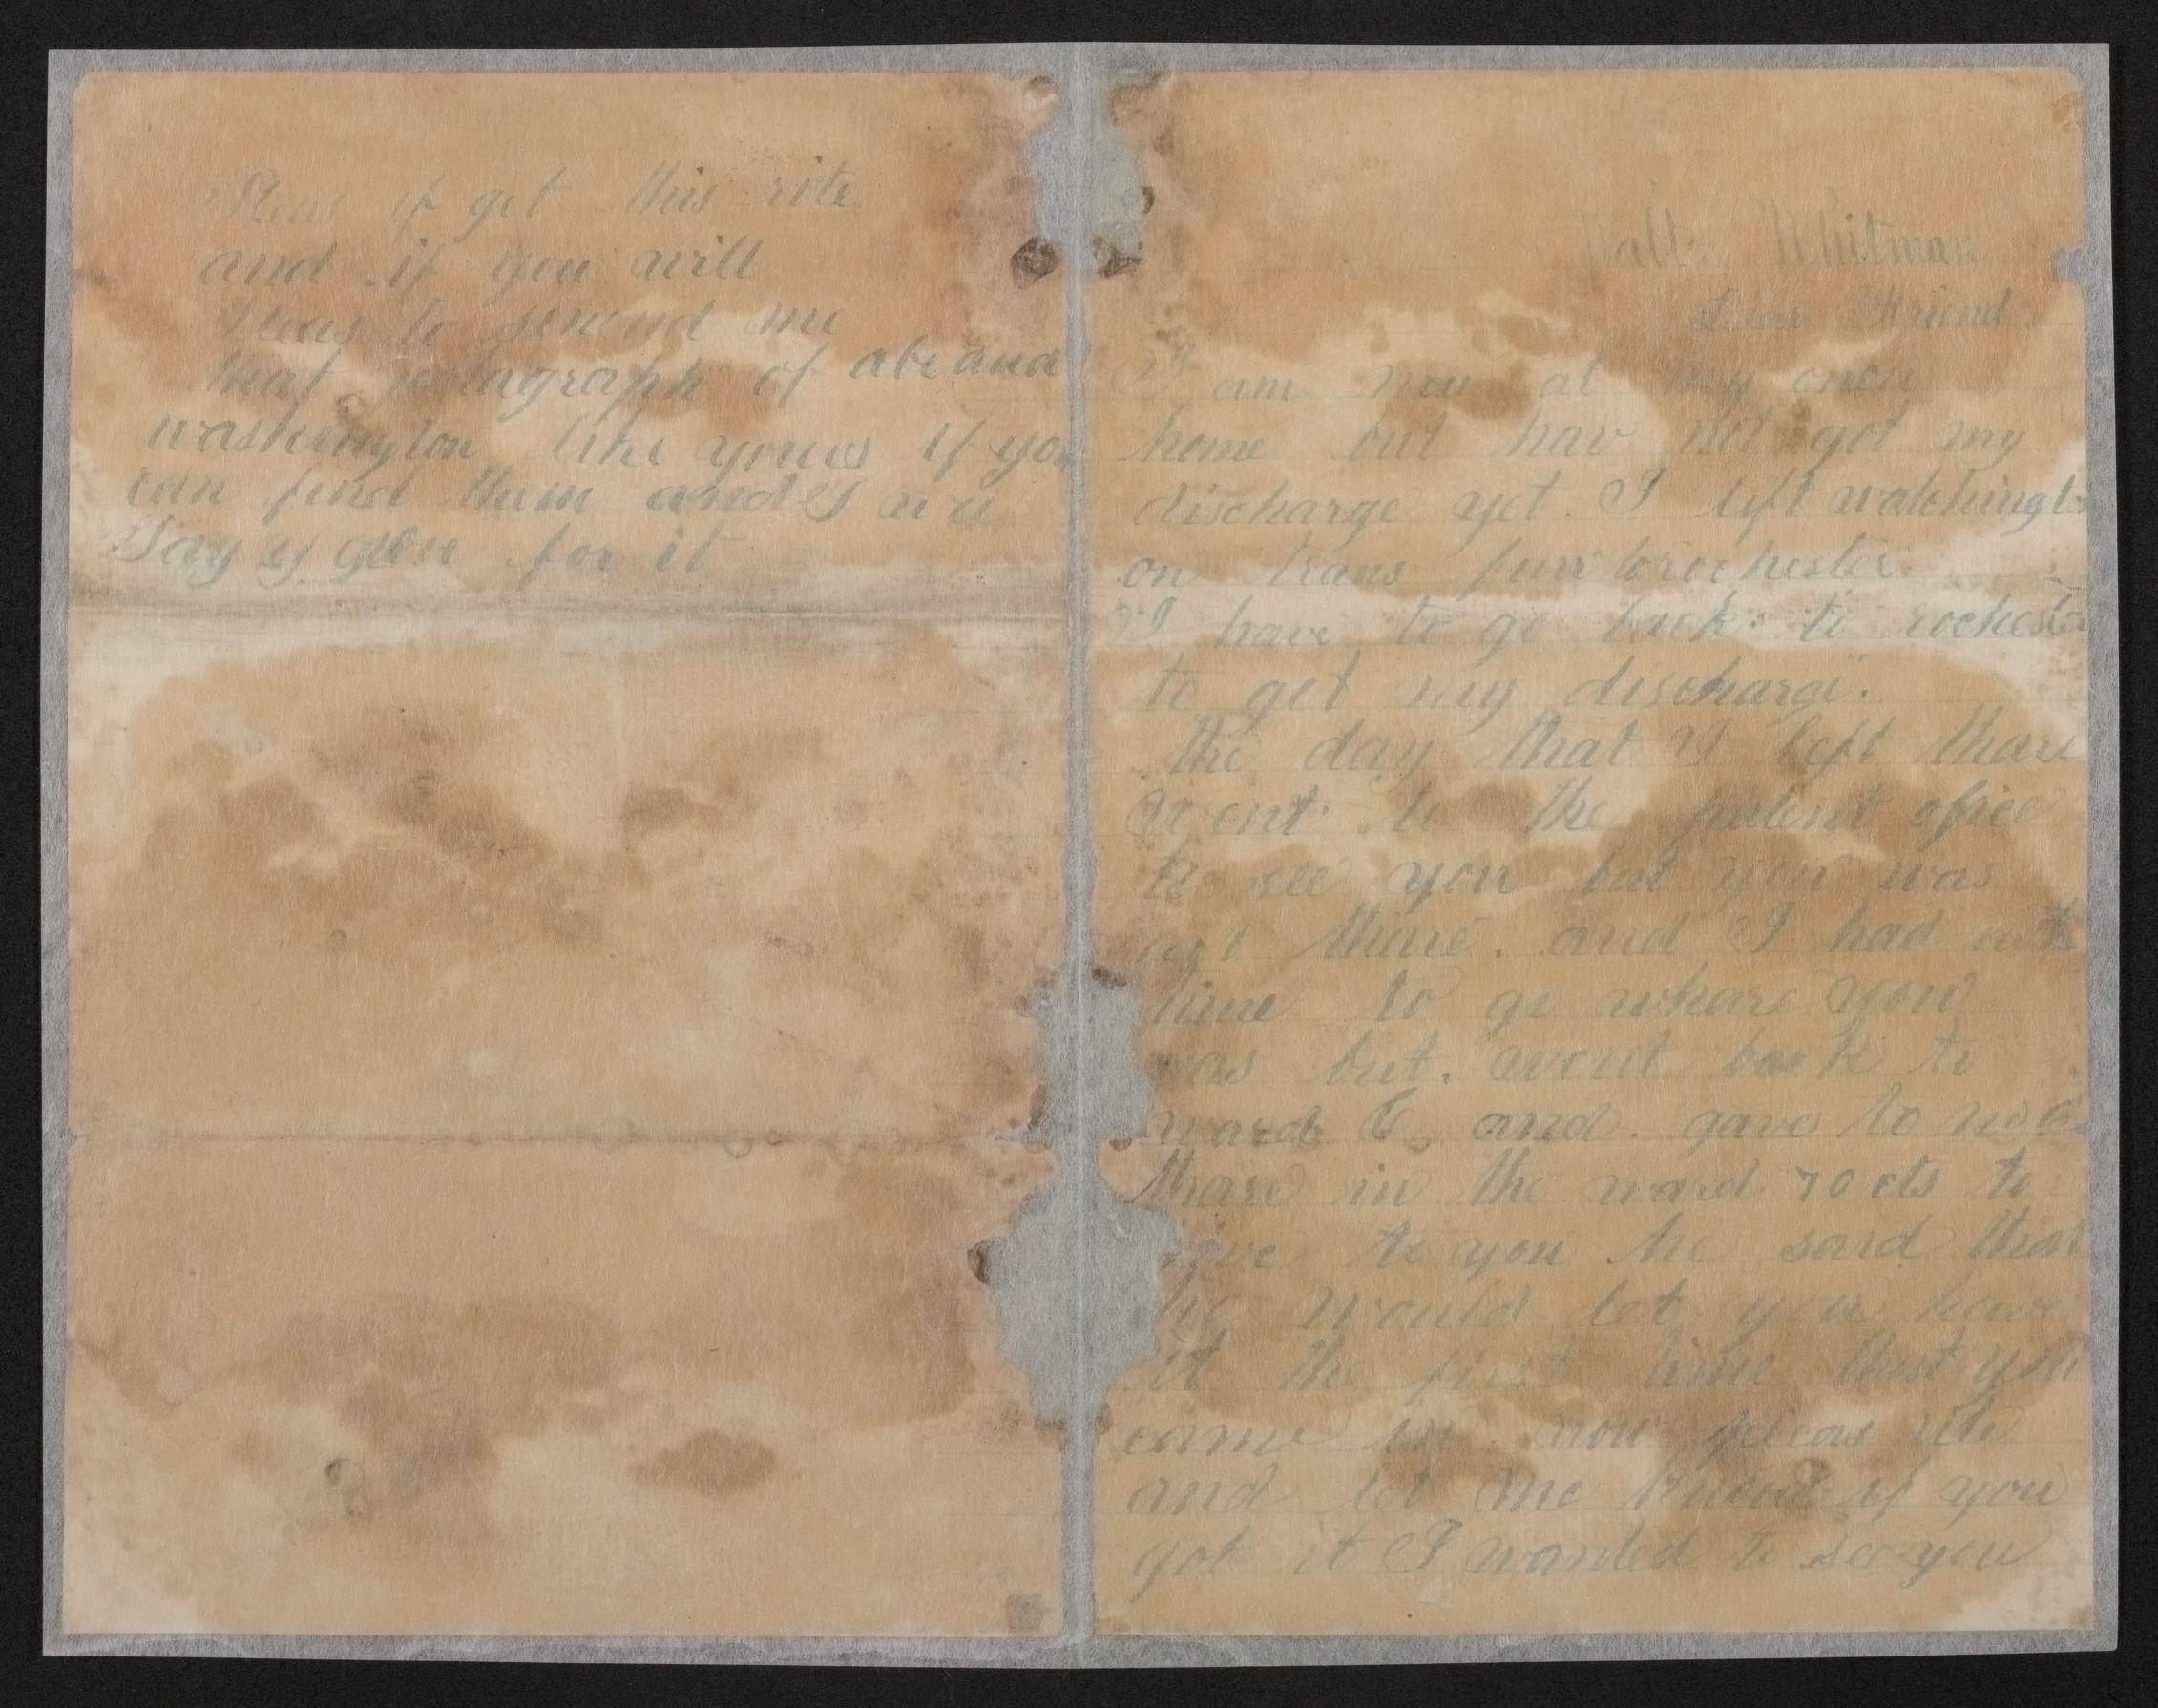 Pleas if get this rite
and if you will
Pleas to senend me
that potagraph of abe and
washington like yours if you
can find them and I will
Pay y for it
Walt Whitman
Dear Friend
I am now at my own
home but hav not got my
discharge yet. I left watchington
on trans to rochester.
I have to go back to rochester
to get my discharge.
the day that I left thare
went to the patent ofice
to see you but you was
not thare. and I had not
time to go whare you
was but. went back to
ward 6 and. gave to
thare in the ward 70 cts to
give to you he said that
he would let you have
it the first time that you
came in now pleas rite
and let me know if you
got it I wanted to see you